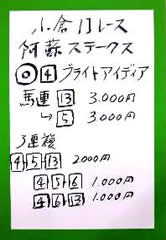 小倉11レース
阿蘇ステークス
◎4 ブライトアイディア
馬連 13 3.000円
→5 3.000円
3連複
4 5 13 2000円
4 5 6 1.000円
4 6 13 1.000円